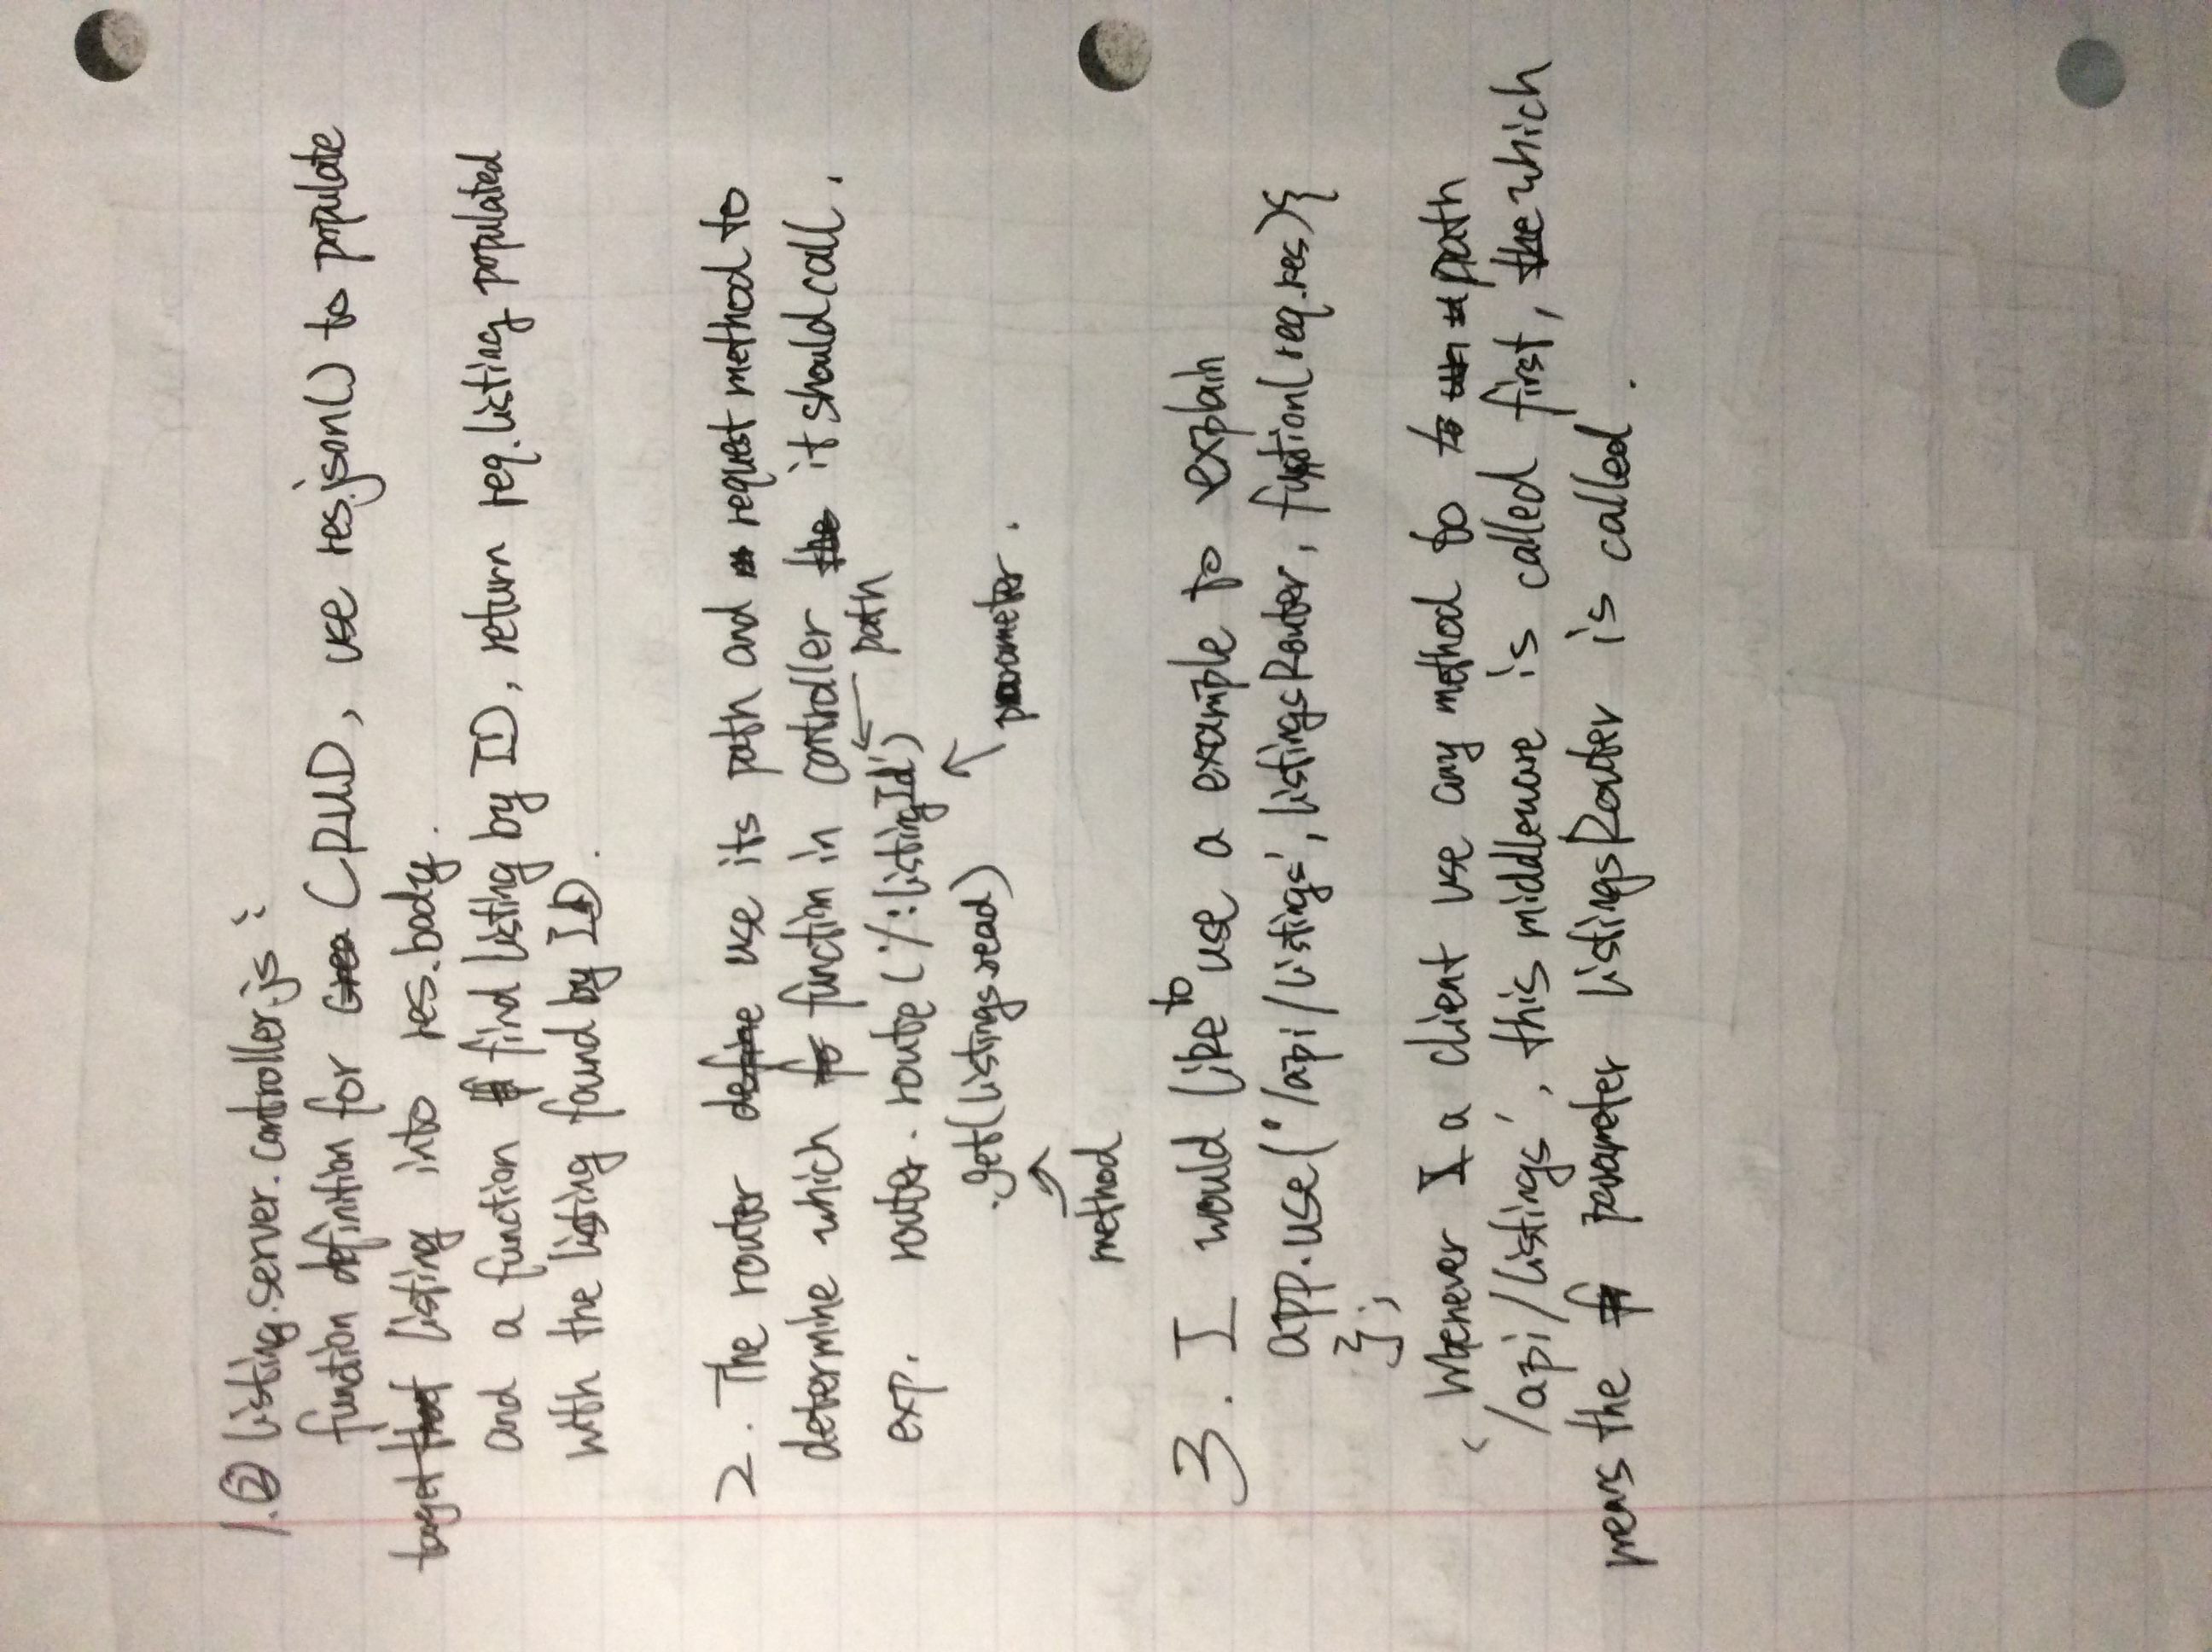 1.② listing.server.controller.js :
function definition for CRUD, use res.json() to populate
target listing into res.body.
and a function find listing by ID, return req.listing populated
with the listing found by ID.
2. The router use its path and request method to
determine which function in controller it should call.
exp. router.route('/:listingId') ← path
.get(listings.read) ↑ parameter.
↑
method
3. I would like to use a example to explain
app.use('/api/listings', listingsRouter, function(req.res){
};
Whenever a client use any method to path
'/api/listings', this middleware is called first, which
means the parameter listingsRouter is called.